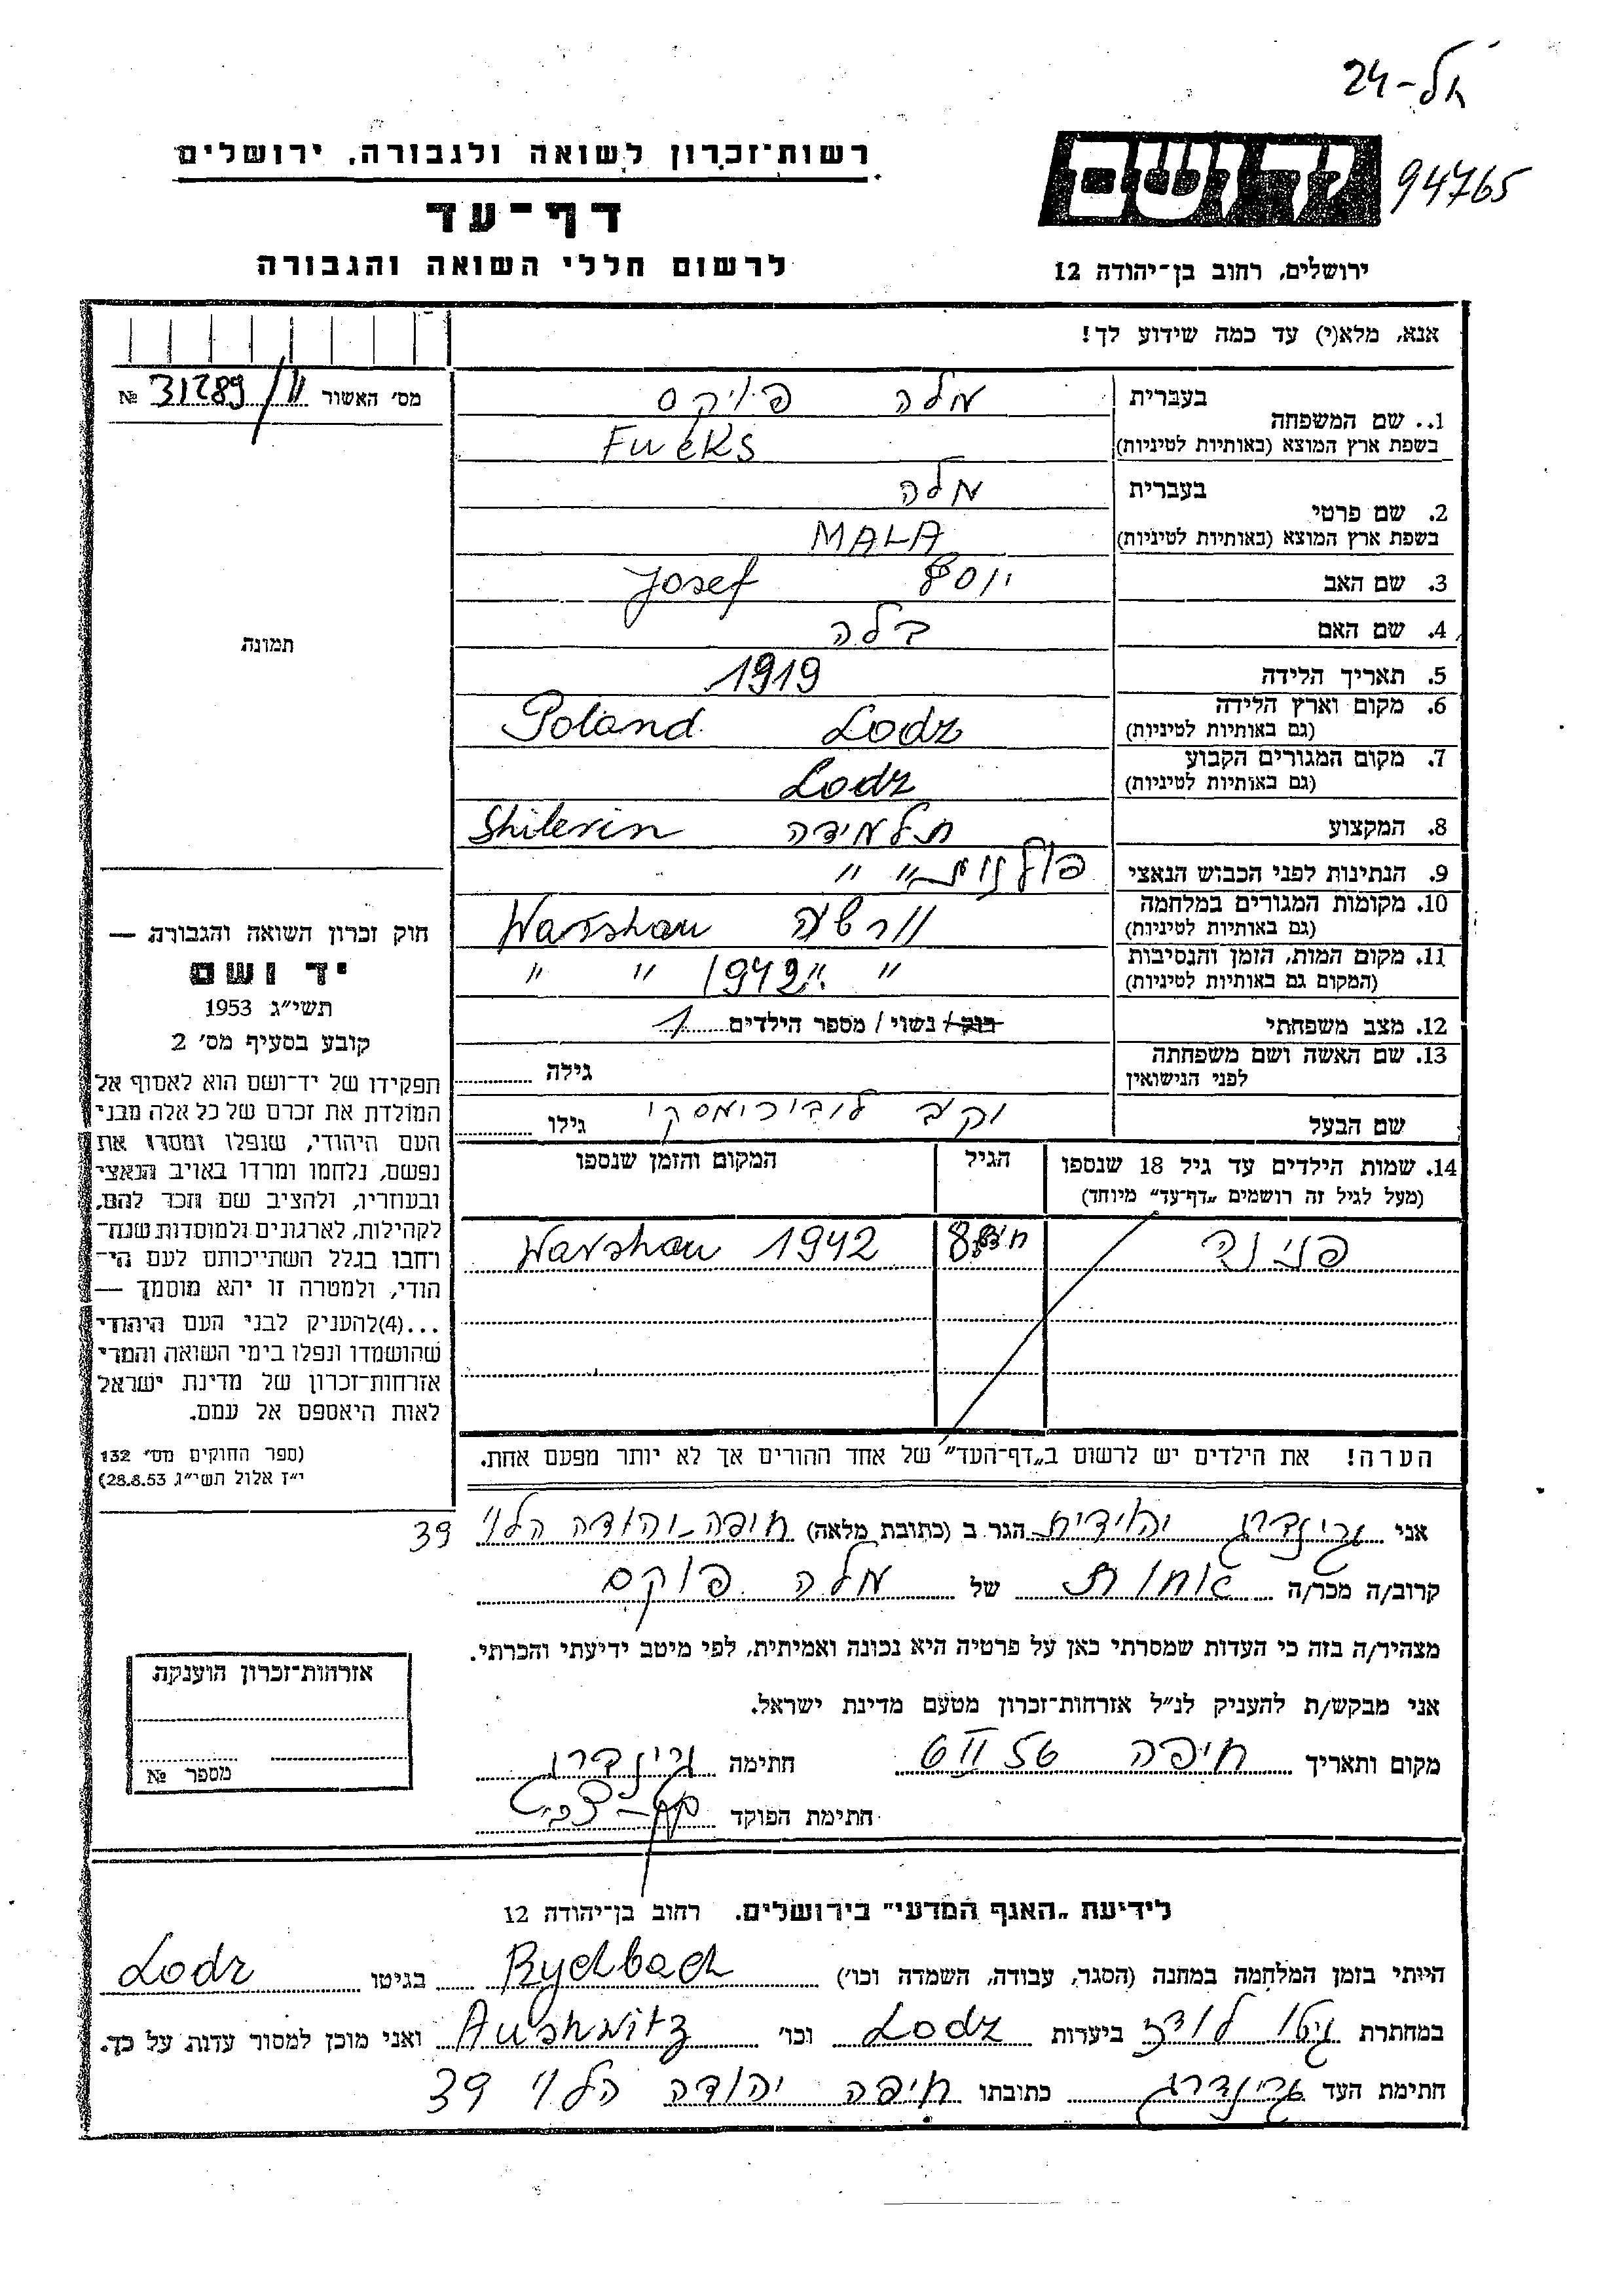 24-
94765
יד ושם
ירושלים, רחוב בן־יהודה 12
רשות־זכרון לשואה ולגבורה, ירושלים
דף־עד
לרשום חללי השואה והגבורה
אנא, מלא(י) עד כמה שידוע לך!
מס׳ האשור 31289/11 №
1. שם המשפחה
בעברית מלה פויקס
בשפת ארץ המוצא (באותיות לטיניות) Fueks
2. שם פרטי
בעברית מלה
בשפת ארץ המוצא (באותיות לטיניות) MALA
3. שם האב יוסף Josef
4. שם האם בלה
5. תאריך הלידה 1919
6. מקום וארץ הלידה Lodz Poland
(גם באותיות לטיניות)
7. מקום המגורים הקבוע Lodz
(גם באותיות לטיניות)
8. המקצוע תלמידה Shilerin
9. הנתינות לפני הכבוש הנאצי פולנית " "
10. מקומות המגורים במלחמה וורשה Warshau
(גם באותיות לטיניות)
11. מקום המות, הזמן והנסיבות " " 1942 " "
(המקום גם באותיות לטיניות)
12. מצב משפחתי רוק / נשוי / מספר הילדים 1
13. שם האשה ושם משפחתה
לפני הנישואין גילה
שם הבעל גילו
14. שמות הילדים עד גיל 18 שנספו הגיל המקום והזמן שנספו
(מעל לגיל זה רושמים „דף־עד״ מיוחד)
פנינה 8 Warshau 1942
הערה! את הילדים יש לרשום ב„דף־העד״ של אחד ההורים אך לא יותר מפעם אחת.
תמונה
חוק זכרון השואה והגבורה —
יד ושם
תשי״ג 1953
קובע בסעיף מס׳ 2
תפקידו של יד־ושם הוא לאסוף אל
המולדת את זכרם של כל אלה מבני
העם היהודי, שנפלו ומסרו את
נפשם, נלחמו ומרדו באויב הנאצי
ובעוזריו, ולהציב שם וזכר להם,
לקהילות, לארגונים ולמוסדות שנח־
רחבו בגלל השתייכותם לעם הי־
הודי, ולמטרה זו יהא מוסמך —
...(4)להעניק לבני העם היהודי
שהושמדו ונפלו בימי השואה והמרי
אזרחות־זכרון של מדינת ישראל
לאות היאספם אל עמם.
(ספר החוקים מס׳ 132
י״ז אלול תשי״ג 28.8.53)
אני גרינברג יהודית הגר ב (כתובת מלאה) חיפה יהודה הלוי 39
קרוב/ה מכר/ה אחות של מלה פוקס
מצהיר/ה בזה כי העדות שמסרתי כאן על פרטיה היא נכונה ואמיתית, לפי מיטב ידיעתי והכרתי.
אני מבקש/ת להעניק לנ״ל אזרחות־זכרון מטעם מדינת ישראל.
מקום ותאריך חיפה 6 II 56 חתימה גרינברג
חתימת הפוקד
אזרחות־זכרון הוענקה
מספר №
לידיעת „האגף המדעי״ בירושלים. רחוב בן־יהודה 12
הייתי בזמן המלחמה במחנה (הסגר, עבודה, השמדה וכו׳) Rychbach בגיטו Lodz
במחתרת גיטו לודז ביערות Lodz וכו׳ Aushwitz ואני מוכן למסור עדות על כך.
חתימת העד גרינברג כתובתו חיפה יהודה הלוי 39